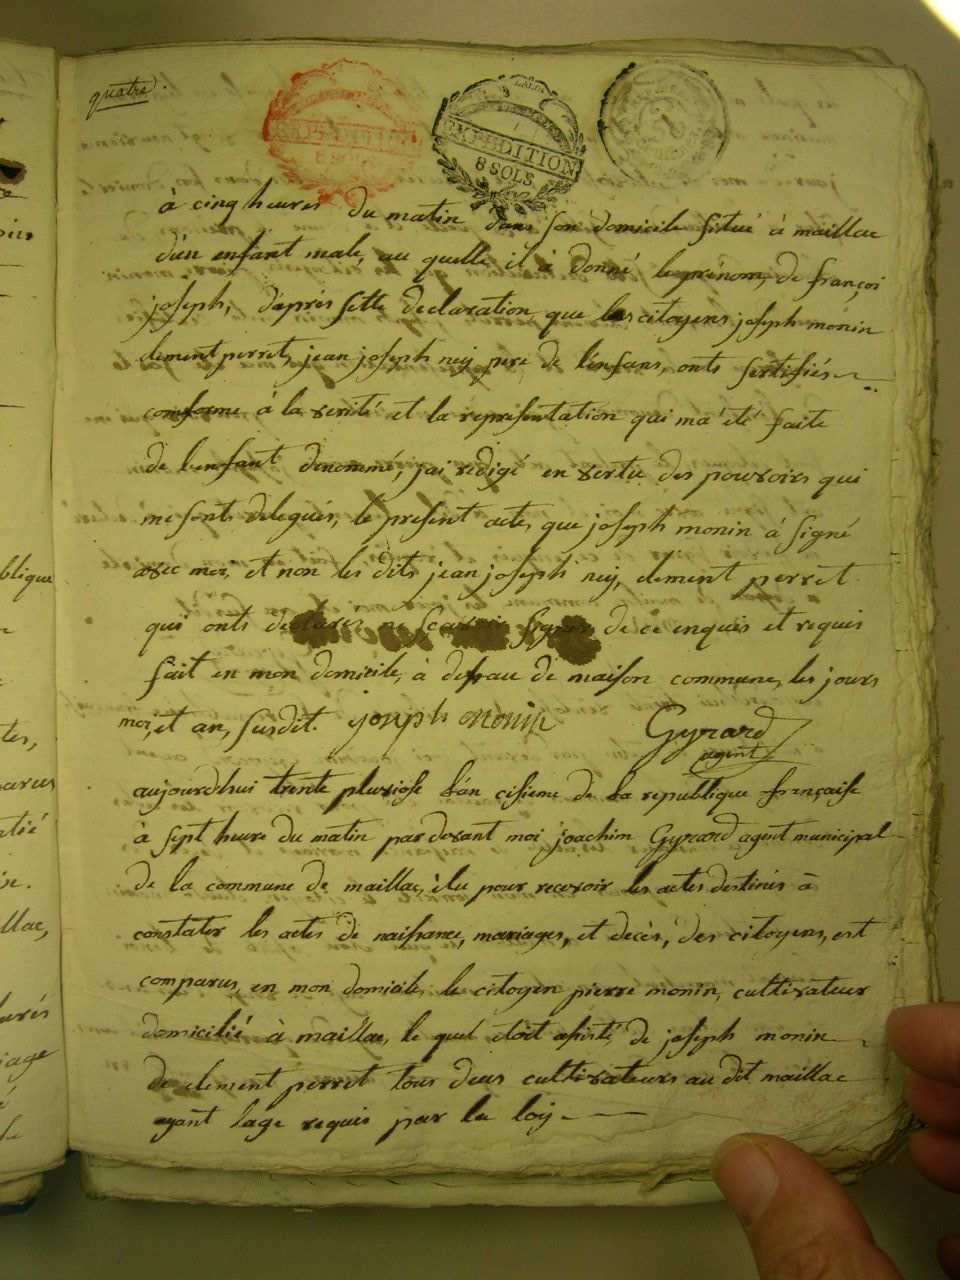 quatre.
EXPEDITION
8 SOLS
EXPEDITION
8 SOLS
à cinq heures du matin dans son domicile situé à maillac
d'un enfant male, au quelle il à donné le prénom, de françoi
joseph, d'après sette declaration que les citoyens joseph monin
clement perret, jean joseph ney pere de l'enfans, onts sertifiés
conforme à la verité et la representation qui ma été faite
de l'enfant denommé, j'ai redigé en vertu des pouvoirs qui
me sonts delegués, le present acte, que joseph monin à signé
avec moi, et non les dits jean joseph ney, clement perret
qui onts declarés ne scavoir signer de ce enquis et requis
fait en mon domicile, à defrau de maison commune, les jours
moi, et an, susdit. joseph monin Gyrard
agent
aujourdhui trente pluviose l'an cisieme de la republique française
à sept heure du matin pardevant moi joachim Gyrard agent municipal
de la commune de maillac, élu pour recevoir les actes destinés à
constater les actes de naissance, mariages, et decès, des citoyens, est
comparus, en mon domicile, le citoyen pierre monin, cultivateur
domicilié à maillac, le quel etoit asisté, de joseph monin
de clement perret tous deux cultivateurs au dit maillac
ayant lage requis par la loy